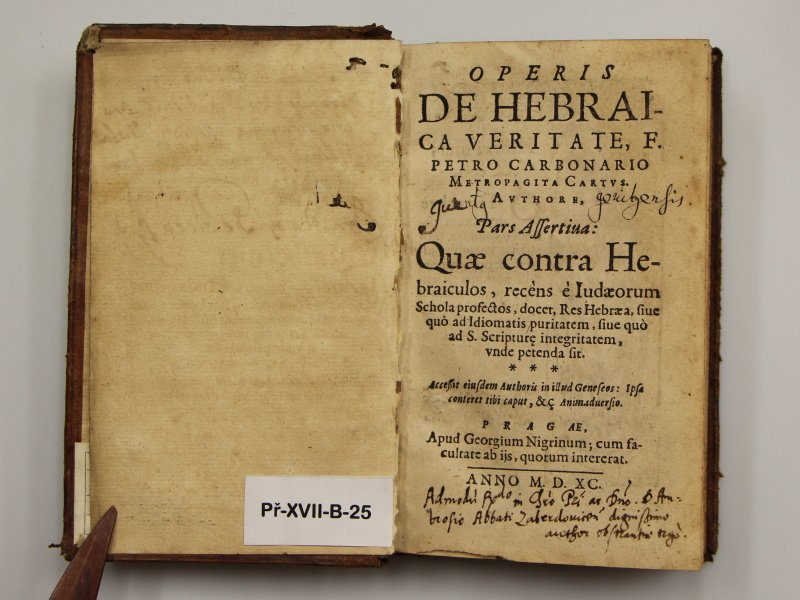 OPERIS
DE HEBRAI-
CA VERITATE, F.
PETRO CARBONARIO
METROPAGITA CARTVS.
AVTHORE,
Pars Assertiua:
Quæ contra He-
braiculos, recèns è Iudæorum
Schola profectos, docet, Res Hebræa, siue
quò ad Idiomatis puritatem, siue quò
ad S. Scripturę integritatem,
vnde petenda sit.
* * *
Accessit eiusdem Authoris in illud Geneseos: Ipsa
conteret tibi caput, &ç Animaduersio.
PRAGÆ,
Apud Georgium Nigrinum; cum fa-
cultate ab ijs, quorum intererat.
ANNO M. D. XC.
Admodũ in Chro Pri ac Dno. D Am-
brosio Abbati Zaberdouicen dignissimo
author
Př-XVII-B-25